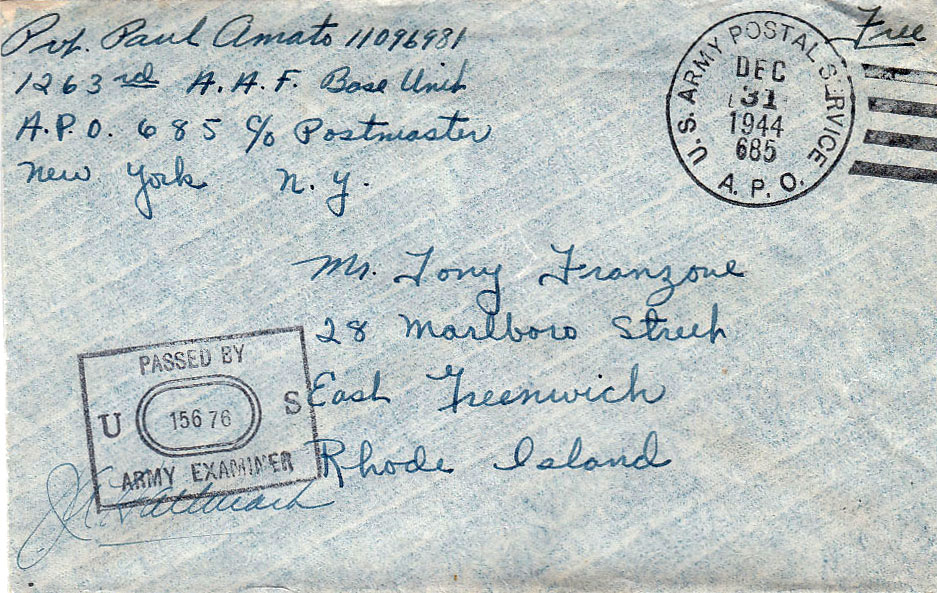 Pvt. Paul Amato 11096981
1263rd A.A.F. Base Unit
A.P.O. 685 c/o Postmaster
New York N.Y.
Free
U.S. ARMY POSTAL SERVICE
DEC
31
1944
685
A.P.O.
Mr. Tony Franzone
28 Marlboro Street
East Greenwich
Rhode Island
PASSED BY
U 15676 S
ARMY EXAMINER